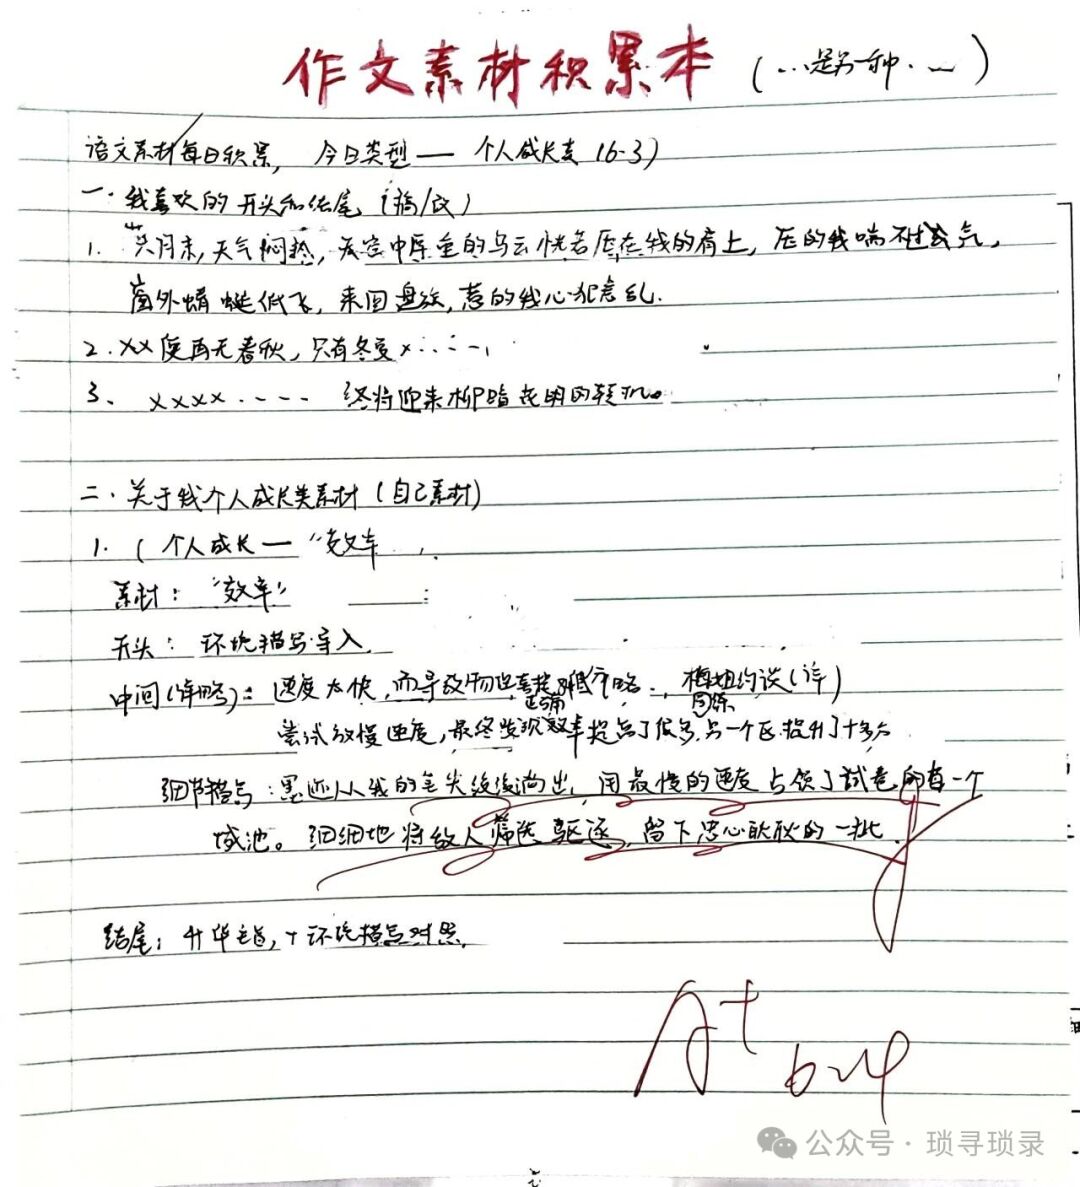 作文素材积累本 (...是另一种.....)
语文素材每日积累, 今日类型— 个人成长类 (6-3)
一. 我喜欢的开头和结尾 (摘/改)
1. 六月末,天气闷热,天空中厚重的乌云恍若压在我的肩上,压的我喘不过气,
窗外蜻蜓低飞,来回盘旋,惹的我心烦意乱.
2. XX使再无春秋,只有冬夏
3、 XXXX..... 终将迎来柳暗花明的转机。
二. 关于我个人成长类素材 (自己素材)
1. ( 个人成长— "效率
素材: "效率"
开头: 环境描写导入
中间(详略): 速度太快,而导致 (详)
尝试放慢速度,最终发现效率提高了很多,另一个区提升了十多分
细节描写:墨迹从我的笔尖缓缓淌出,用最慢的速度占领了试卷的每一个
城池。细细地将敌人筛选驱逐,留下忠心耿耿的一批.
结尾: 升华主旨,+环境描写对照.
A+
6.4
公众号·琐寻琐录